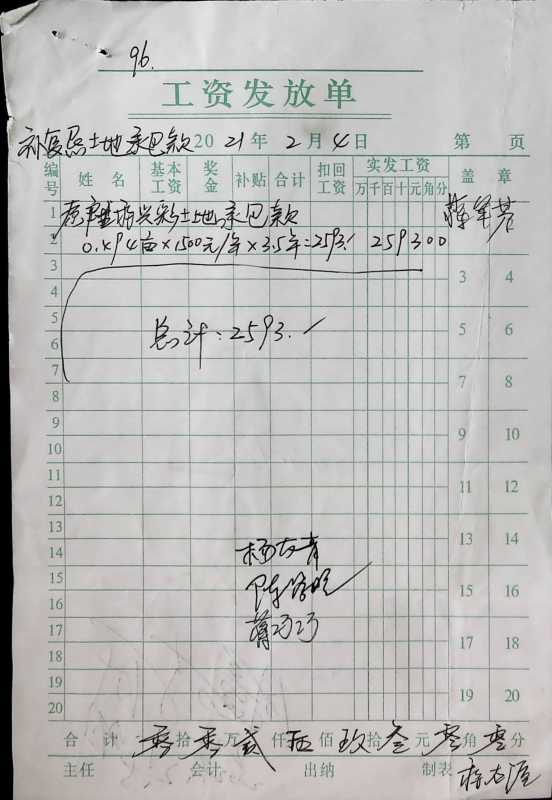 96.
工资发放单
补复垦土地承包款 2021年2月4日 第 页
编号 姓名 基本工资 奖金 补贴 合计 扣回工资 实发工资 万千百十元角分 盖章
1 土地承包款
2 0.494亩×1500元/年×3.5年=2593. 259300
3 3 4
4
5 总计:2593. 5 6
6
7 7 8
8
9 9 10
10
11 11 12
12
13 13 14
14
15 15 16
16
17 17 18
18
19 19 20
20
合计 零拾零万贰仟伍佰玖拾叁元零角零分
主任 会计 出纳 制表